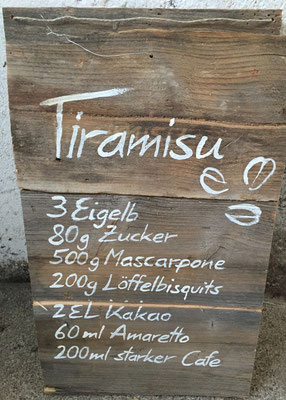 Tiramisu
3 Eigelb
80g Zucker
500g Mascarpone
200g Löffelbisquits
2 EL Kakao
60 ml Amaretto
200ml starker Cafe